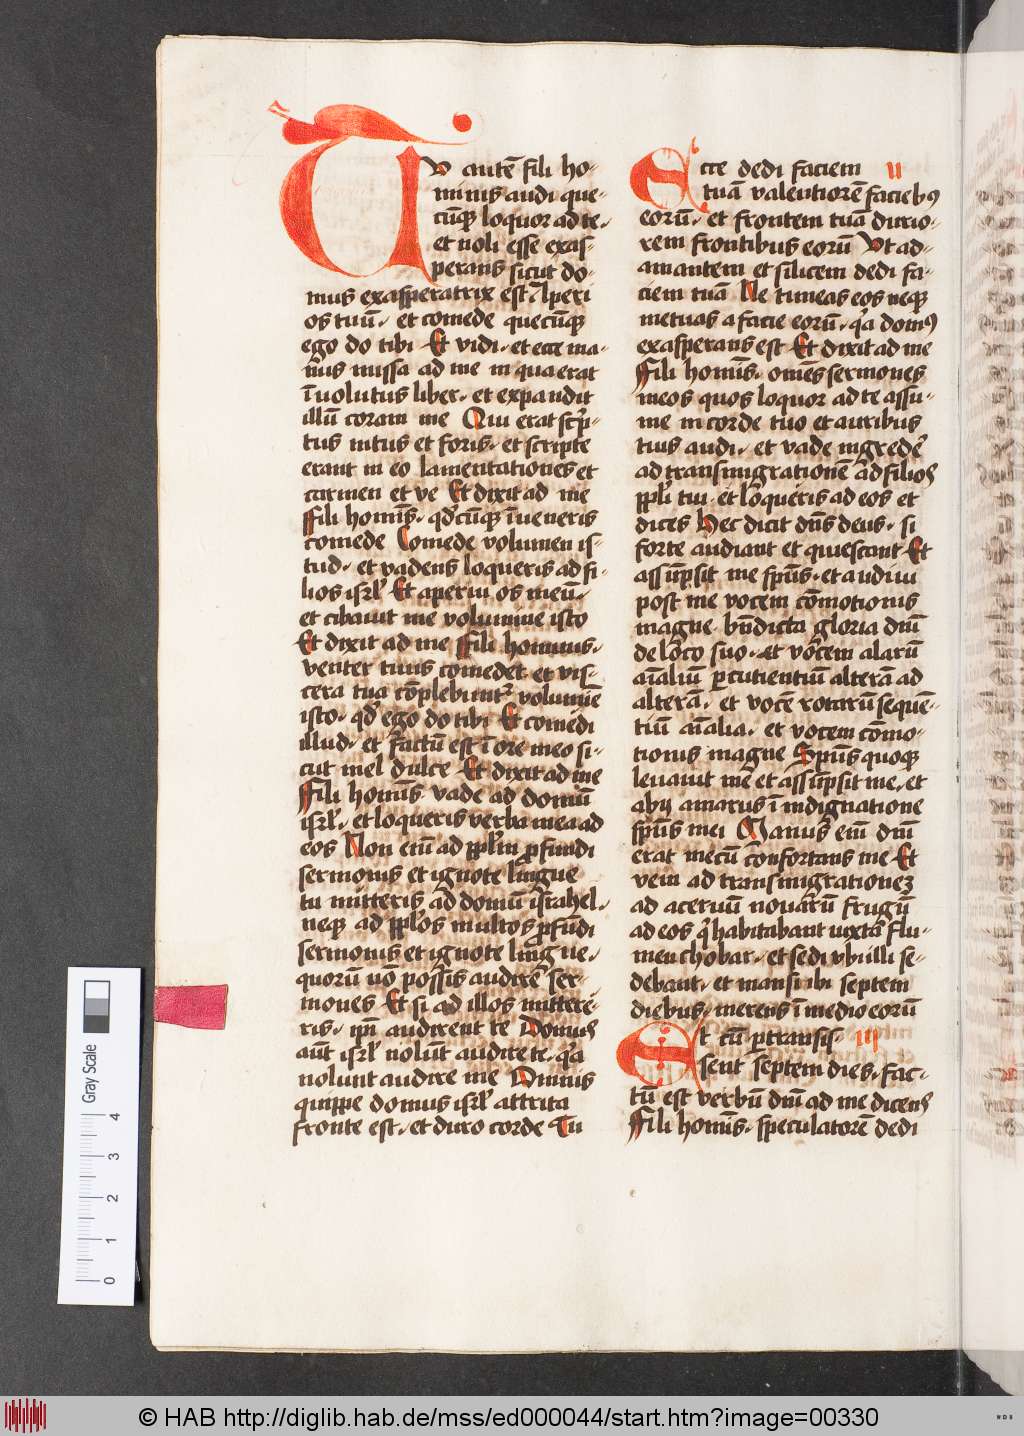 Tu autē fili ho-
minis audi que-
cūq; loquor ad te.
et noli esse exas-
perans sicut do-
mus exasperatrix est Aperi
os tuū. et comede quecūq;
ego do tibi Et vidi. et ecce ma-
nus missa ad me in qua erat
īuolutus liber. et expandit
illū coram me Qui erat sc͛p-
tus intus et foris. et scripte
erant in eo lamentationes et
carmen et ve Et dixit ad me
Fili homīs. qd͛cūq; īueneris
comede Comede volumen is-
tud. et vadens loqueris ad fi-
lios isrl̄ Et aperui os meū.
et cibauit me volumine isto
Et dixit ad me Fili hominis.
venter tuus comedet et vis-
cera tua cōplebunt͛ volumīe
isto. qd͛ ego do tibi Et comedi
illud. et factū est ī ore meo si-
cut mel dulce Et dixit ad me
Fili homīs vade ad domū
isrl̄. et loqueris verba mea ad
eos Non eī ad pplm̄ ꝓfundi
sermonis et ignote lingue
tu mitteris ad domū israhel.
neq; ad pplōs multos ꝓfūdi
sermonis et ignote lingue.
quorū nō possis audire ser-
mones Et si ad illos mittere-
ris. ipī audirent te Domus
aūt isrl̄ nolūt audire te. qa
nolunt audire me Omnis
quippe domus isrl̄ attrita
fronte est. et duro corde Tu
Ecce dedi faciem II
tuā valentiorē facieb9
eorū. et frontem tuā durio-
rem frontibus eorū Vt ad-
amantem et silicem dedi fa-
ciem tuā Ne timeas eos neq;
metuas a facie eorū. qa dom9
exasperans est Et dixit ad me
Fili homīs. omēs sermones
meos quos loquor ad te assu-
me in corde tuo et auribus
tuis audi. et vade ingrede͛
ad transmigrationē ad filios
ppli tui. et loqueris ad eos et
dices Hec dicit dn̄s deus. si
forte audiant et quiescant Et
assūpsit me spūs. et audiui
post me vocem cōmotionis
magne. bn̄dicta gloria dn̄i
de loco suo. et vocem alarū
aīaliū ꝑcutientiū alterā ad
alterā. et vocē rotarū sequē-
tiū aīalia. et vocem cōmo-
tionis magne Spūs quoq;
leuauit me et assūpsit me. et
abij amarus ī indignatione
spūs mei Manus eī dn̄i
erat mecū confortans me Et
veni ad transmigrationeʒ
ad aceruū nouarū frugū
ad eos q̄ habitabant iuxta flu-
men chobar. et sedi vbi illi se-
debant. et mansi ibi septem
diebus. merens ī medio eorū
Et cū ꝑtransis- III
sent septem dies. fac-
tū est verbū dn̄i ad me dicens
Fili homīs. speculatorē dedi
Gray Scale
4
3
2
1
0
© HAB http://diglib.hab.de/mss/ed000044/start.htm?image=00330